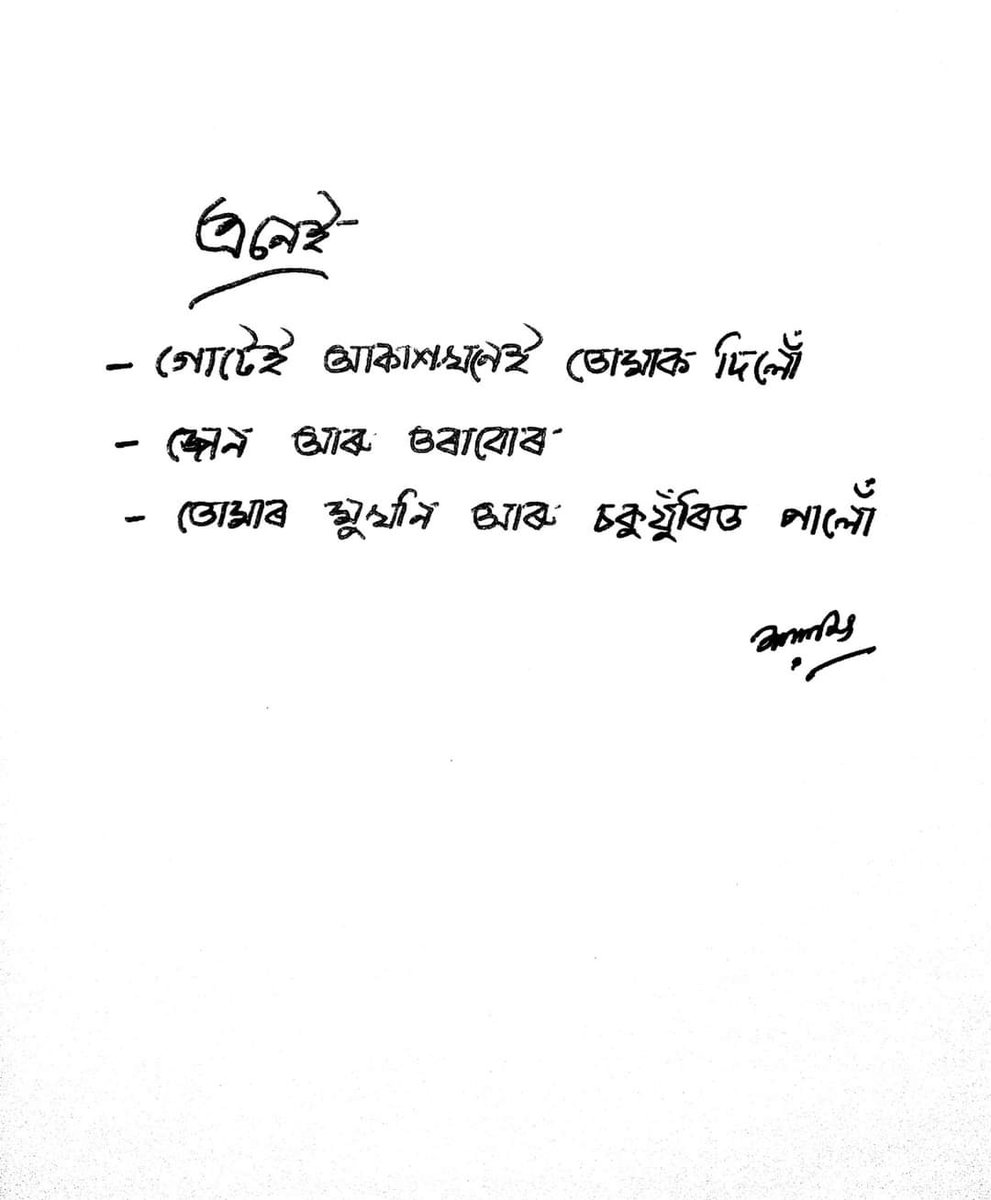 এনেই
- গোটেই আকাশখনেই তোমাক দিলোঁ
- জোন আৰু তৰাবোৰ
- তোমাৰ মুখনি আৰু চকুযুঁৰিত পালোঁ